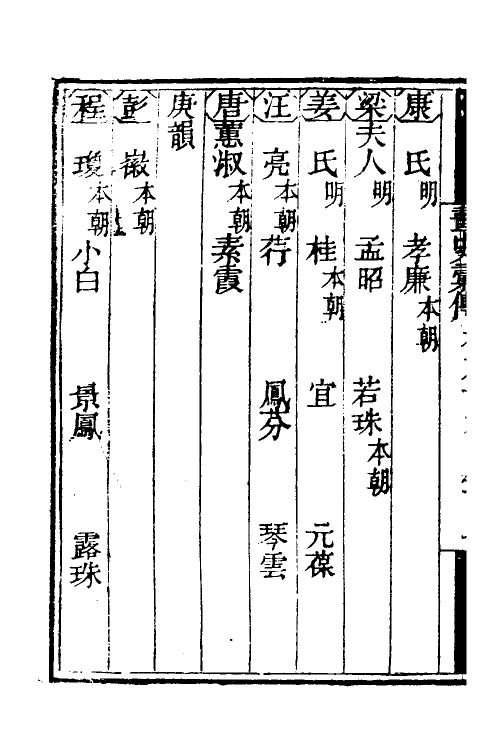 畫史彙傳
康 氏明 孝廉本朝
梁夫人明 孟昭 若珠本朝
姜 氏明 桂本朝 宜 元葆
汪 亮本朝 荇 鳳芬 琴雲
唐蕙淑本朝 素霞
庚韻
彭 嶶本朝
程 瓊本朝 小白 景鳳 露珠